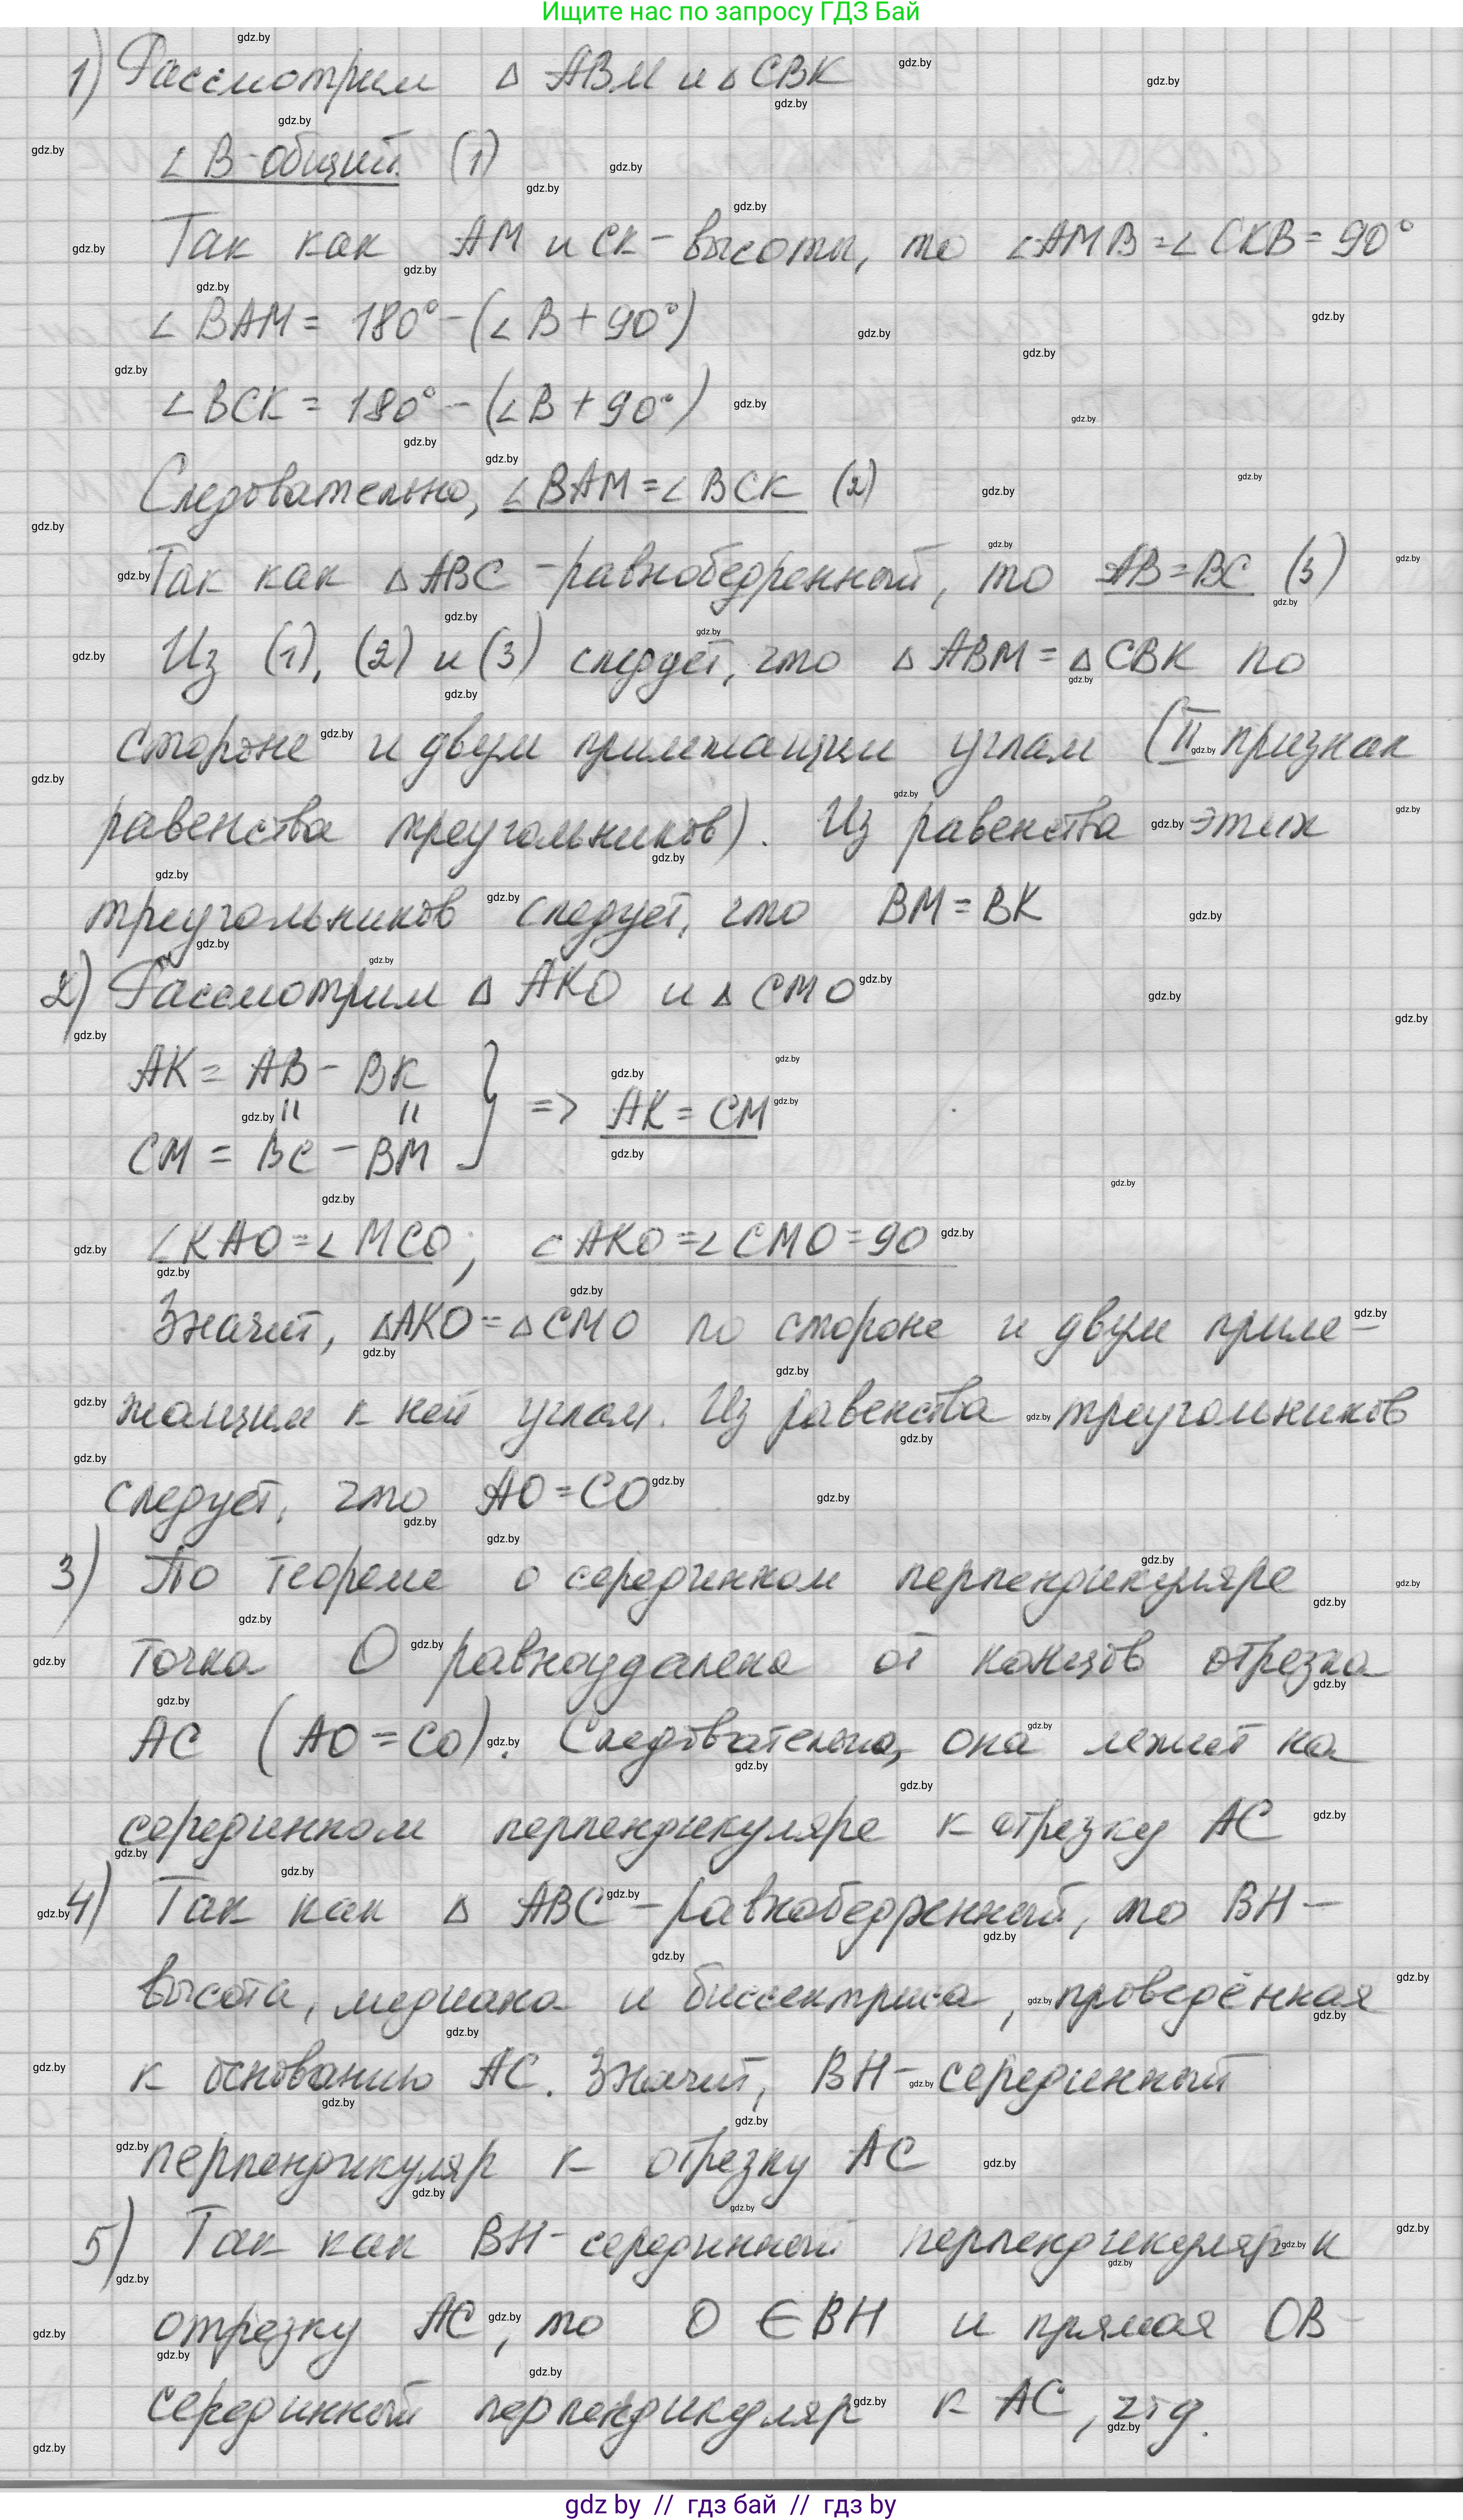 Ищите нас по запросу ГДЗ Бай
1) Рассмотрим △ ABM и △ CBK
∠ B - общий. (1)
Так как AM и CK - высоты, то ∠AMB = ∠ CKB = 90°
∠ BAM = 180° - (∠ B + 90°)
∠ BCK = 180° - (∠B + 90°)
Следовательно, ∠ BAM = ∠ BCK (2)
Так как △ ABC - равнобедренный, то AB = BC (3)
Из (1), (2) и (3) следует, что △ ABM = △ CBK по
стороне и двум прилежащим углам (II признак
равенства треугольников). Из равенства этих
треугольников следует, что BM = BK
2) Рассмотрим △ AKO и △ CMO
AK = AB - BK
CM = BC - BM } => AK = CM
∠ KAO = ∠ MCO; ∠ AKO = ∠ CMO = 90
Значит, △AKO = △ CMO по стороне и двум приле-
жащим к ней углам. Из равенства треугольников
следует, что AO = CO
3) По теореме о серединном перпендикуляре
точка O равноудалена от концов отрезка
AC (AO = CO). Следовательно, она лежит на
серединном перпендикуляре к отрезку AC
4) Так как △ ABC - равнобедренный, то BH -
высота, медиана и биссектриса, проведённая
к основанию AC. Значит, BH - серединный
перпендикуляр к отрезку AC
5) Так как BH - серединный перпендикуляр к
отрезку AC, то O ∈ BH и прямая OB -
серединный перпендикуляр к AC, чтд.
gdz by // гдз бай // гдз by